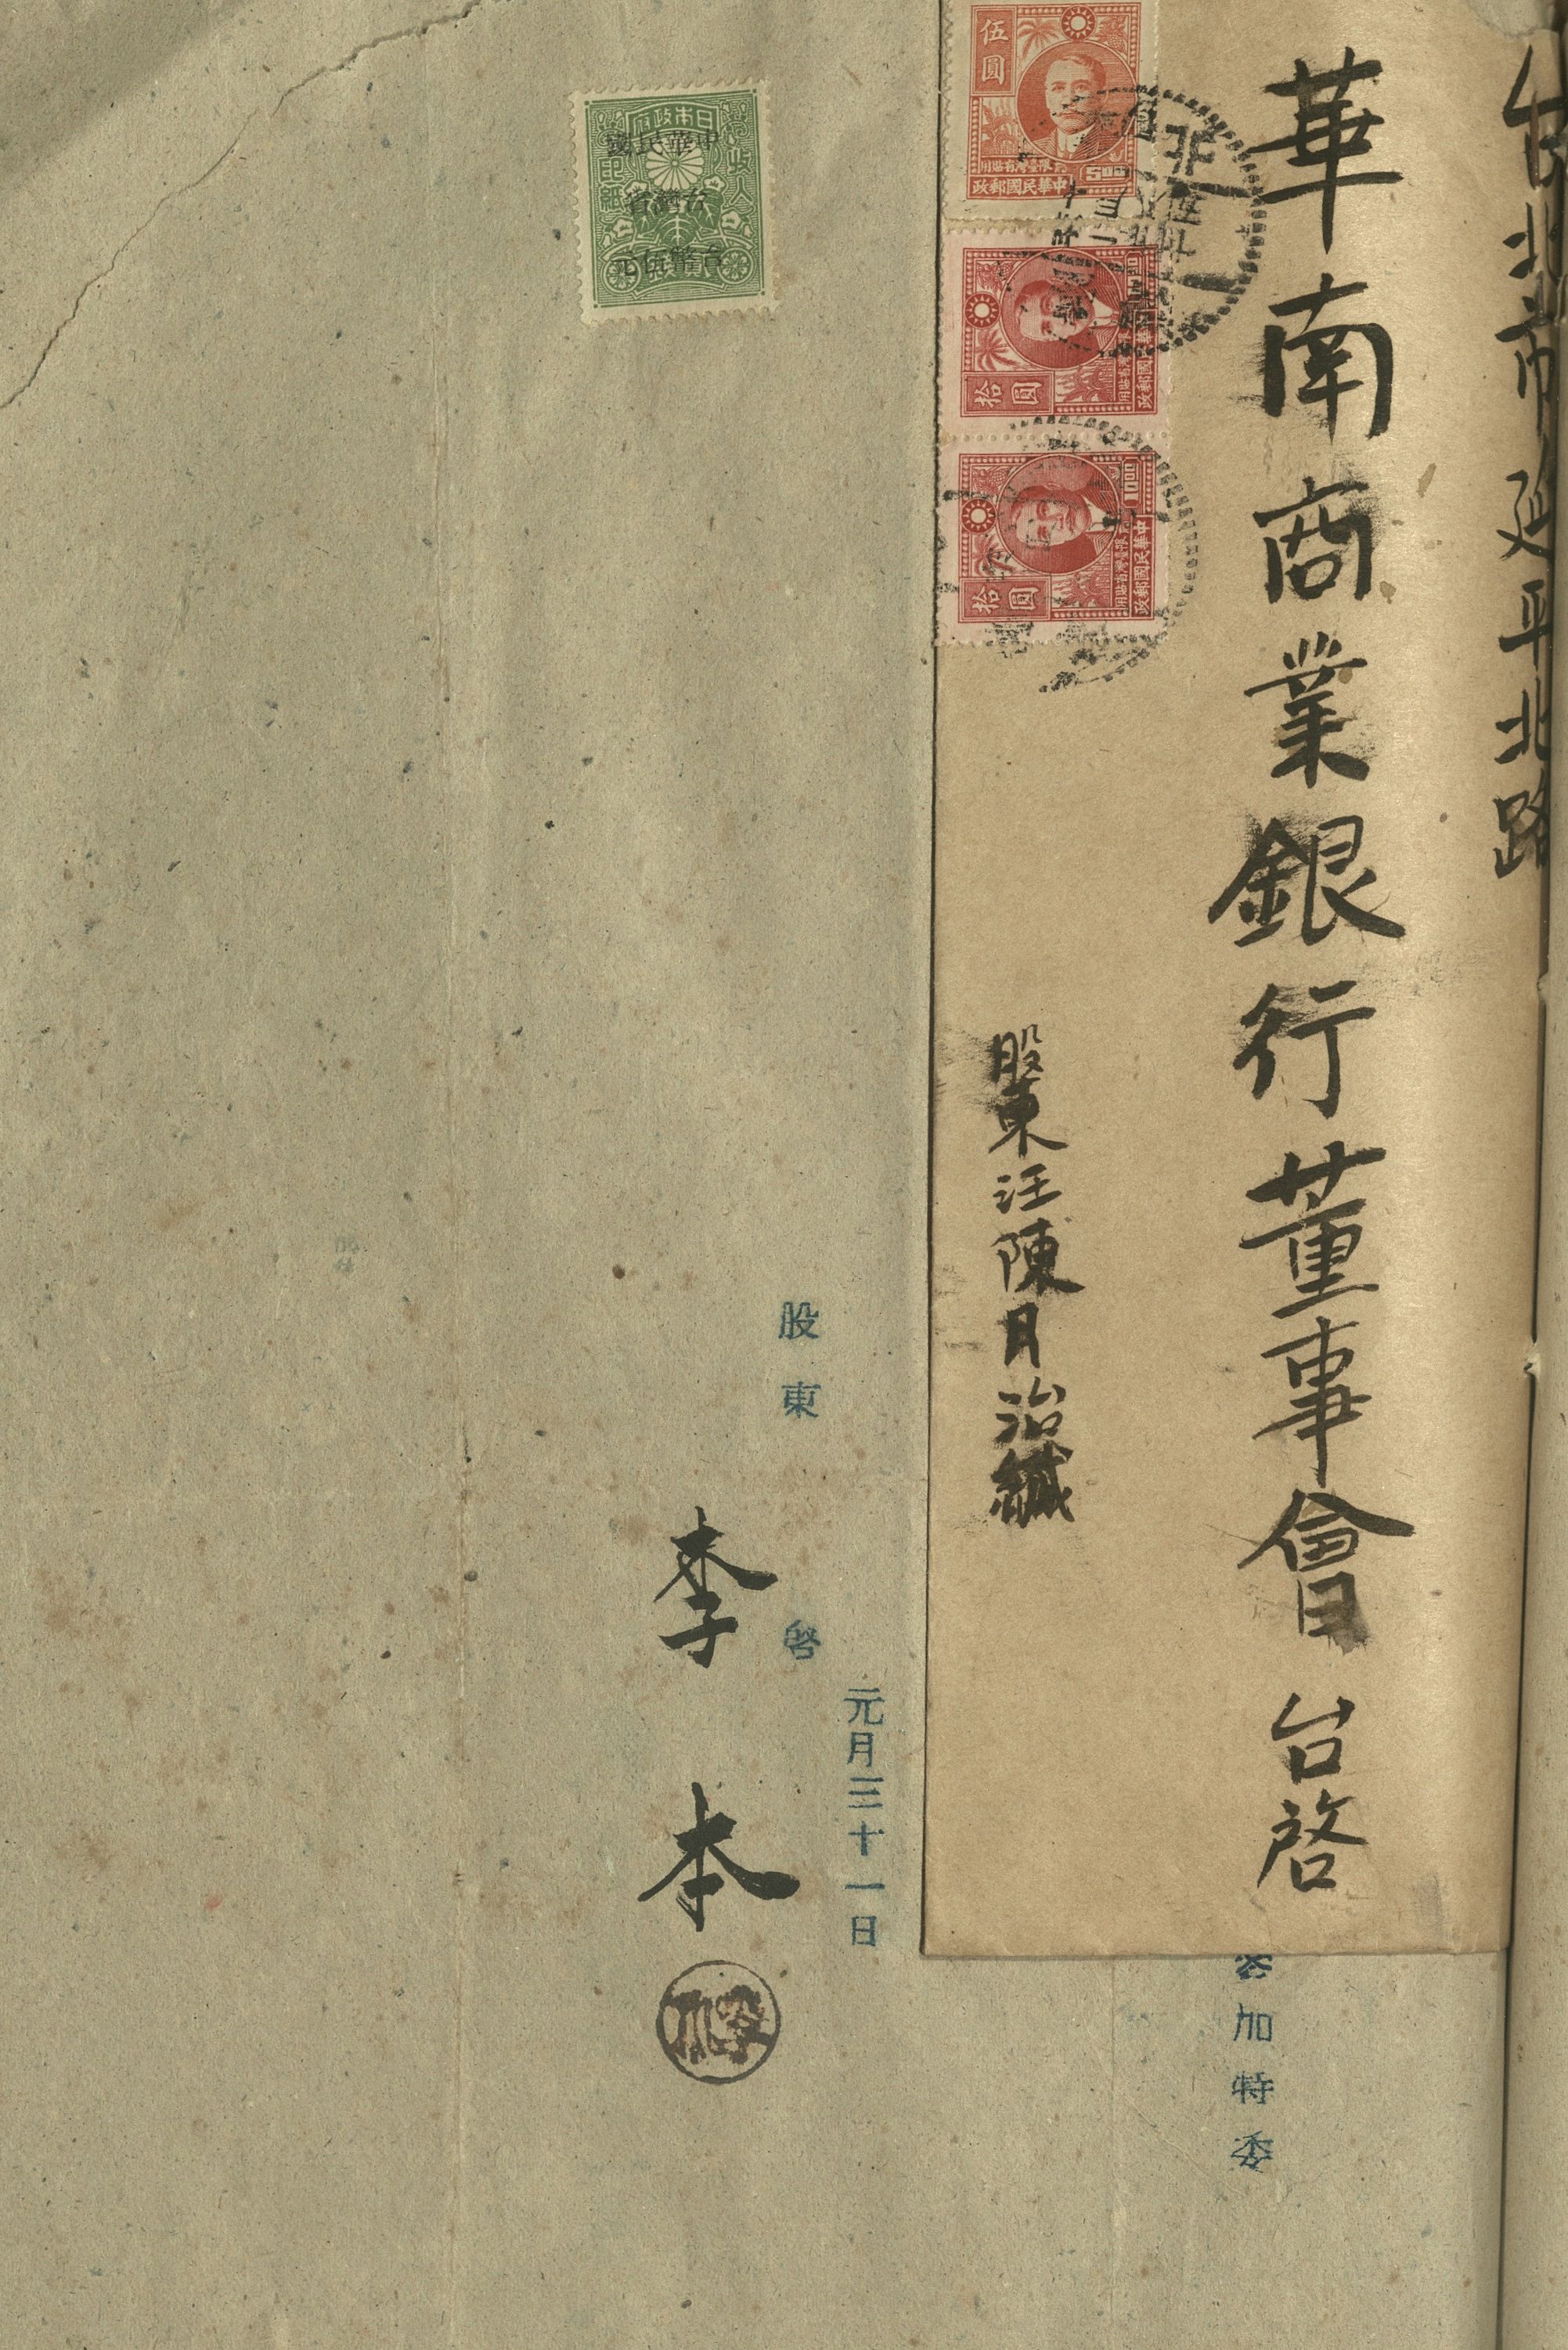 台北市延平北路
華南商業銀行董事會 台啓
股東汪陳月治緘
伍圓
5.00
限臺灣省貼用
中華民國郵政
拾圓
限臺灣省貼用
中華民國郵政
拾圓
10.00
限臺灣省貼用
中華民國郵政
加特委
元月三十一日
股東
李本
日本政府
收入印紙
中華民國
台灣省